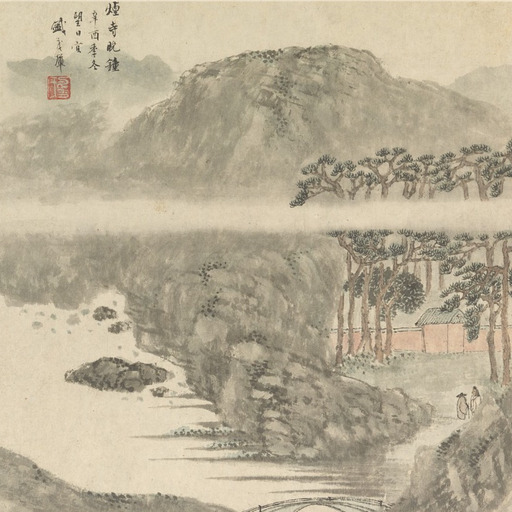 煙寺晚鐘
辛酉季冬
望日寫
盛茂燁